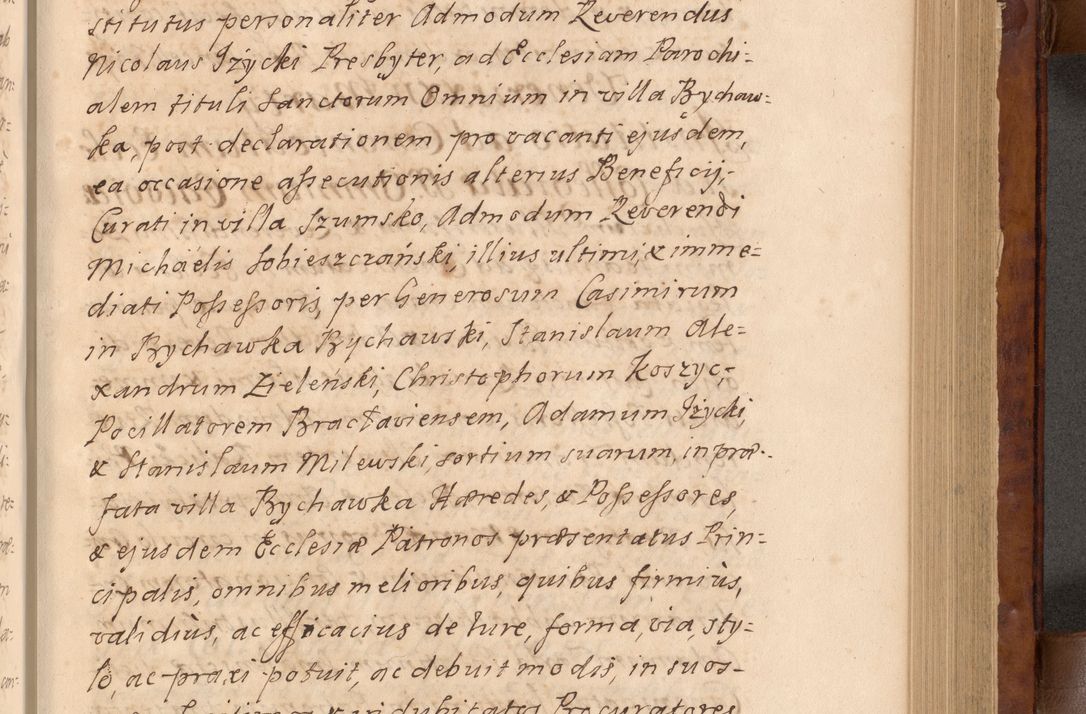 stitutus personaliter Admodum Reverendus
Nicolaus Iżycki Presbyter, ad Ecclesiam Parochi-
alem tituli Sanctorum Omnium in villa Bychaw-
ka, post declarationem pro vacanti ejusdem,
ea occasione assecutionis alterius Beneficij,
Curati in villa Szumsko, Admodum Reverendi
Michaelis Sobieszczański, illius ultimi, & imme-
diati Possessoris, per Generosum Casimirum
in Bychawka Bychawski, Stanislaum Ale-
xandrum Zieleński, Christophorum Koszyc,
Pocillatorem Bractaviensem, Adamum Iżycki,
& Stanislaum Milewski, sortium suarum, in præ-
fata villa Bychawka Hæredes, & Possessores,
& ejusdem Ecclesiæ Patronos præsentatus Prin-
cipalis, omnibus melioribus, quibus firmiùs,
validiùs, ac efficacius de Iure, forma, via, sty-
lô, ac praxi potuit, ac debuit modis, in suos
& indubitatos Procuratores